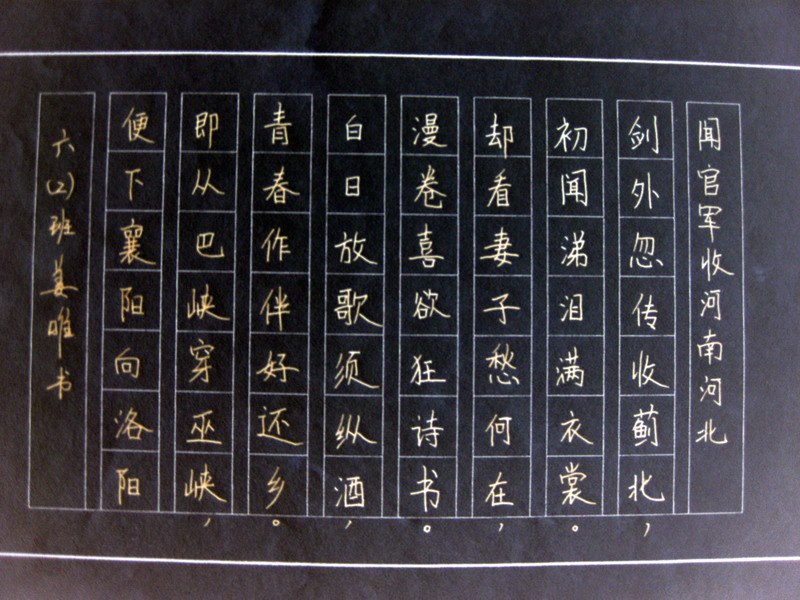 闻官军收河南河北
剑外忽传收蓟北，
初闻涕泪满衣裳。
却看妻子愁何在，
漫卷喜欲狂诗书。
白日放歌须纵酒，
青春作伴好还乡。
即从巴峡穿巫峡，
便下襄阳向洛阳
六(2)班姜唯书